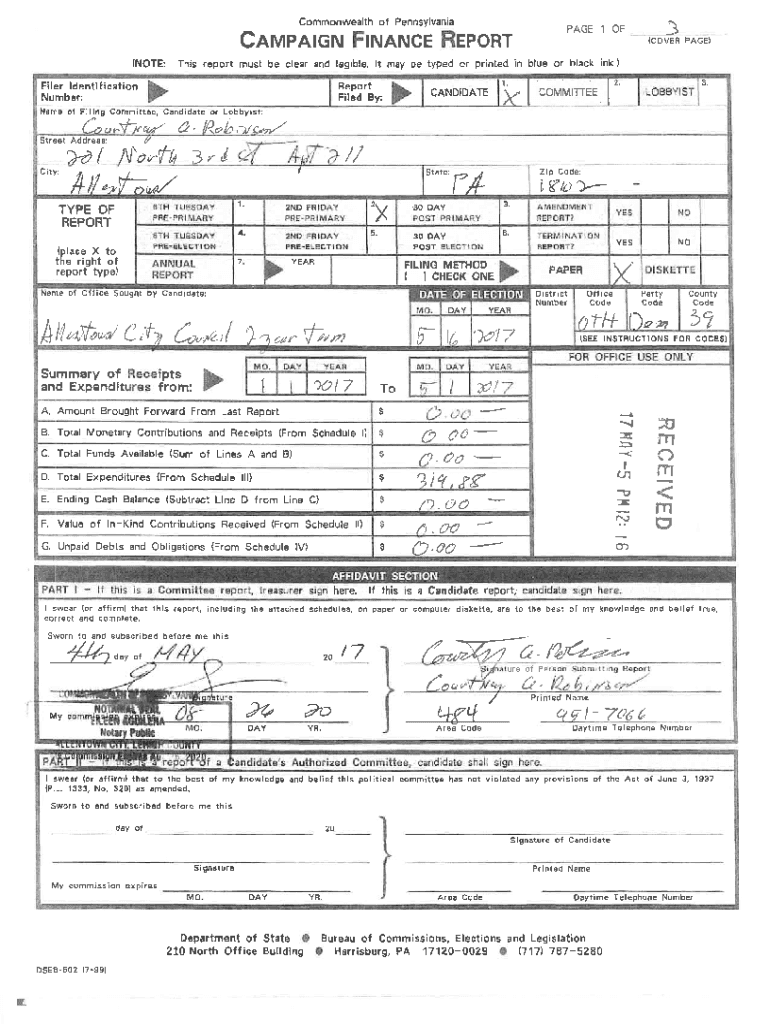 Commonwealth of Pennsylvania
CAMPAIGN FINANCE REPORT
PAGE 1 OF 3
(COVER PAGE)
(NOTE: This report must be clear and legible. It may be typed or printed in blue or black ink)
Filer Identification Number:
Report Filed By:
CANDIDATE 1. X
COMMITTEE 2.
LOBBYIST 3.
Name of Filing Committee, Candidate or Lobbyist:
Courtney A. Robinson
Street Address:
221 North 3rd St Apt 211
City: Allentown
State: PA
Zip Code: –
TYPE OF REPORT
(place X to the right of report type)
6TH TUESDAY PRE-PRIMARY 1.
2ND FRIDAY PRE-PRIMARY 2. X
30 DAY POST PRIMARY 3.
AMENDMENT REPORT? YES NO
6TH TUESDAY PRE-ELECTION 4.
2ND FRIDAY PRE-ELECTION 5.
30 DAY POST ELECTION 6.
TERMINATION REPORT? YES NO
ANNUAL REPORT 7.
YEAR
FILING METHOD ( ) CHECK ONE
PAPER X
DISKETTE
Name of Office Sought by Candidate:
Allentown City Council 2 year term
DATE OF ELECTION
MO. DAY YEAR
5 16 2017
District Number
Office Code OTH
Party Code Dem
County Code 39
(SEE INSTRUCTIONS FOR CODES)
Summary of Receipts and Expenditures from:
MO. DAY YEAR
1 1 2017
To
MO. DAY YEAR
5 1 2017
FOR OFFICE USE ONLY
RECEIVED
17 MAY -5 PM 12: 16
A. Amount Brought Forward From Last Report $ 0.00 —
B. Total Monetary Contributions and Receipts (From Schedule I) $ 0 00 —
C. Total Funds Available (Sum of Lines A and B) $ 0.00 —
D. Total Expenditures (From Schedule III) $ 319.88
E. Ending Cash Balance (Subtract Line D from Line C) $ 0.00 —
F. Value of In-Kind Contributions Received (From Schedule II) $ 0.00 —
G. Unpaid Debts and Obligations (From Schedule IV) $ 0.00 —
AFFIDAVIT SECTION
PART I – If this is a Committee report, treasurer sign here. If this is a Candidate report, candidate sign here.
I swear (or affirm) that this report, including the attached schedules, on paper or computer diskette, are to the best of my knowledge and belief true, correct and complete.
Sworn to and subscribed before me this
4th day of MAY 20 17
Signature
Courtney A. Robinson
Signature of Person Submitting Report
Courtney A. Robinson
Printed Name
COMMONWEALTH OF PENNSYLVANIA
NOTARIAL SEAL
EILEEN AGUILERA
Notary Public
ALLENTOWN CITY, LEHIGH COUNTY
My commission expires 08 26 20
MO. DAY YR.
484 951-7066
Area Code Daytime Telephone Number
PART II – If this is a report of a Candidate's Authorized Committee, candidate shall sign here.
I swear (or affirm) that to the best of my knowledge and belief this political committee has not violated any provisions of the Act of June 3, 1937
(P.L. 1333, No. 320) as amended.
Sworn to and subscribed before me this
day of 20
Signature of Candidate
Signature
Printed Name
My commission expires
MO. DAY YR.
Area Code Daytime Telephone Number
Department of State • Bureau of Commissions, Elections and Legislation
210 North Office Building • Harrisburg, PA 17120-0029 • (717) 787-5280
DSEB-502 (7-99)